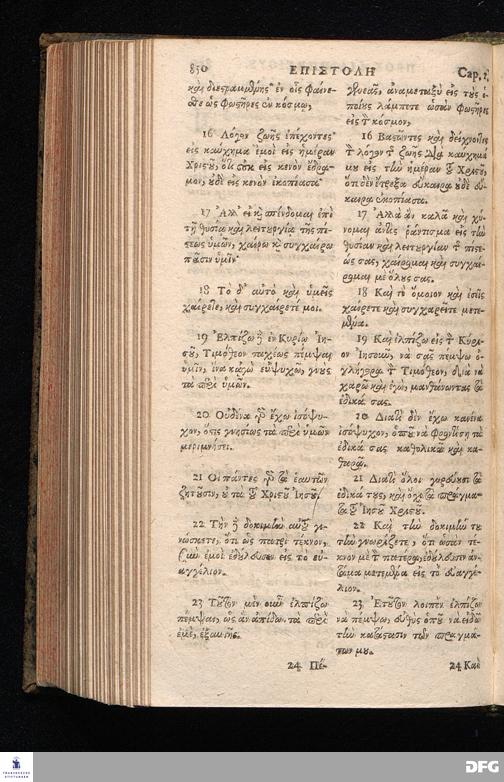 850
ΕΠΙΣΤΟΛΗ
Cap. 2.
καὶ διεστραμμένης· ἐν οἷς φαίνε-
σθε ὡς φωστῆρες ἐν κόσμῳ,
16 Λόγον ζωῆς ἐπέχοντες
εἰς καύχημα ἐμοὶ εἰς ἡμέραν
Χριστοῦ, ὅτι οὐκ εἰς κενὸν ἔδρα-
μον, οὐδὲ εἰς κενὸν ἐκοπίασα.
17 Ἀλλ' εἰ καὶ σπένδομαι ἐπὶ
τῇ θυσίᾳ καὶ λειτουργίᾳ τῆς πί-
στεως ὑμῶν, χαίρω καὶ συγχαίρω
πᾶσιν ὑμῖν·
18 Τὸ δ' αὐτὸ καὶ ὑμεῖς
χαίρετε, καὶ συγχαίρετέ μοι.
19 Ἐλπίζω δὲ ἐν Κυρίῳ Ἰη-
σοῦ, Τιμόθεον ταχέως πέμψαι
ὑμῖν, ἵνα κἀγὼ εὐψυχῶ, γνοὺς
τὰ περὶ ὑμῶν.
20 Οὐδένα γὰρ ἔχω ἰσόψυ-
χον, ὅστις γνησίως τὰ περὶ ὑμῶν
μεριμνήσει.
21 Οἱ πάντες γὰρ τὰ ἑαυτῶν
ζητοῦσιν, οὐ τὰ τοῦ Χριστοῦ Ἰησοῦ.
22 Τὴν δὲ δοκιμὴν αὐτοῦ γι-
νώσκετε, ὅτι ὡς πατρὶ τέκνον,
σὺν ἐμοὶ ἐδούλευσεν εἰς τὸ εὐ-
αγγέλιον.
23 Τοῦτον μὲν οὖν ἐλπίζω
πέμψαι, ὡς ἂν ἀπίδω τὰ περὶ
ἐμὲ, ἐξαυτῆς.
24 Πέ-
γενεᾶς, ἀναμεταξὺ εἰς τοὺς ὁ-
ποίους λάμπετε ὡσὰν φωστῆρες
εἰς τὸν κόσμον,
16 Βαστῶντες καὶ δείχνοντες
τὸν λόγον τῆς ζωῆς διὰ καύχημά
μου εἰς τὴν ἡμέραν τοῦ Χριστοῦ,
ὅτι δὲν ἔτρεξα εὔκαιρα οὐδὲ εὔ-
καιρα ἐκοπίασα.
17 Ἀλλὰ ἂν καλὰ καὶ χύ-
νομαι ῥάντισμα εἰς τὴν
θυσίαν καὶ λειτουργίαν τῆς πίστε-
ώς σας, χαίρομαι καὶ συγχαί-
ρομαι μὲ ὅλους σας.
18 Καὶ τὸ ὅμοιον καὶ ἐσεῖς
χαίρετε καὶ συγχαίρεστε μετ'
ἐμένα.
19 Καὶ ἐλπίζω εἰς τὸν Κύρι-
ον Ἰησοῦν, νὰ σᾶς πέμψω ὀ-
γλήγορα τὸν Τιμόθεον, διὰ νὰ
χαρῶ καὶ ἐγὼ, μανθάνωντας τὰ
ἐδικά σας.
20 Διατὶ δὲν ἔχω κανένα
ἰσόψυχον, ὁποῦ νὰ φροντίσῃ τὰ
ἐδικά σας καθολικὰ καὶ κα-
θαρά.
21 Διατὶ ὅλοι γυρεύουσι τὰ
ἐδικά τους, καὶ ὄχι τὰ πράγμα-
τα τοῦ Ἰησοῦ Χριστοῦ.
22 Καὶ τὴν δοκιμήν του
τὴν γνωρίζετε, ὅτι ὡσὰν τέ-
κνον μὲ τὸν πατέρα, ἐδούλευσεν ἀν-
τάμα μετ' ἐμένα εἰς τὸ εὐαγγέ-
λιον.
23 Ἐτοῦτον λοιπὸν ἐλπίζω
νὰ πέμψω, εὐθὺς ὁποῦ νὰ εἰδῶ
τὴν κατάστασιν τῶν πραγμά-
των μου.
24 Καὶ
DFG